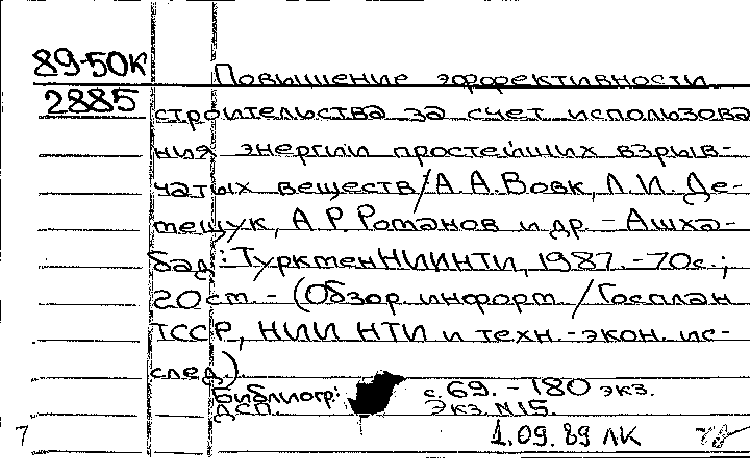 89-50К
2885
Повышение эффективности
строительства за счет использова
ния энергии простейших взрыв-
чатых веществ/А.А.Вовк, Л.И. Де-
мещук, А.Р. Романов и др. - Ашха-
бад: ТуркменНИИНТИ, 1987. - 70с.;
20см. - (Обзор. информ. / Госплан
ТССР, НИИ НТИ и техн.-экон. ис-
след.)
Библиогр: с. 69. - 180 экз.
ДСП. Экз. N 15.
7 1.09.89 ЛК